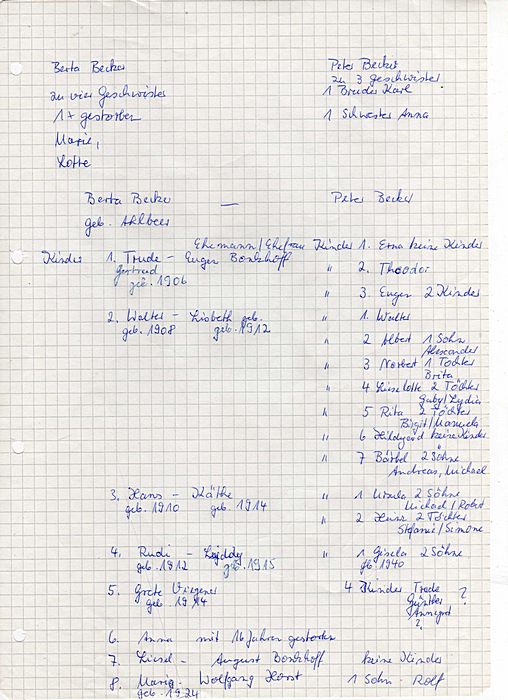 Berta Becker
zu vier Geschwister
1 + gestorben
Marie,
Lotte
Peter Becker
zu 3 Geschwister
1 Bruder Karl
1 Schwester Anna
Berta Becker — Peter Becker
geb. Ahlbeer
Ehemann/Ehefrau Kinder 1. Erna keine Kinder
Kinder 1. Trude - Eugen
Gertrud
geb. 1906
" 2. Theodor
" 3. Eugen 2 Kinder
2. Walter - Lisbeth geb.
geb. 1908 geb. 1912
" 1. Walter
" 2 Albert 1 Sohn
Alexander
" 3 Norbert 1 Tochter
Brita
" 4 Lieselotte 2 Töchter
Gaby/Lydia
" 5 Rita 2 Töchter
Birgit/Manuela
" 6 Hildegard keine Kinder
" 7 Bärbel 2 Söhne
Andreas, Michael
3. Hans - Käthe
geb. 1910 geb. 1914
" 1 Ursula 2 Söhne
Michael/Robert
" 2 2 Töchter
Stefanie/Simone
4. Rudi -
geb. 1912 geb. 1915
" 1 Gisela 2 Söhne
gb. 1940
5. Grete
geb. 1914
4 Kinder Trude
Günther
?
?
6. Anna mit 16 Jahren gestorben
7. Liesel - August keine Kinder
8. Maria - Wolfgang Horst 1 Sohn - Rolf
geb. 1924